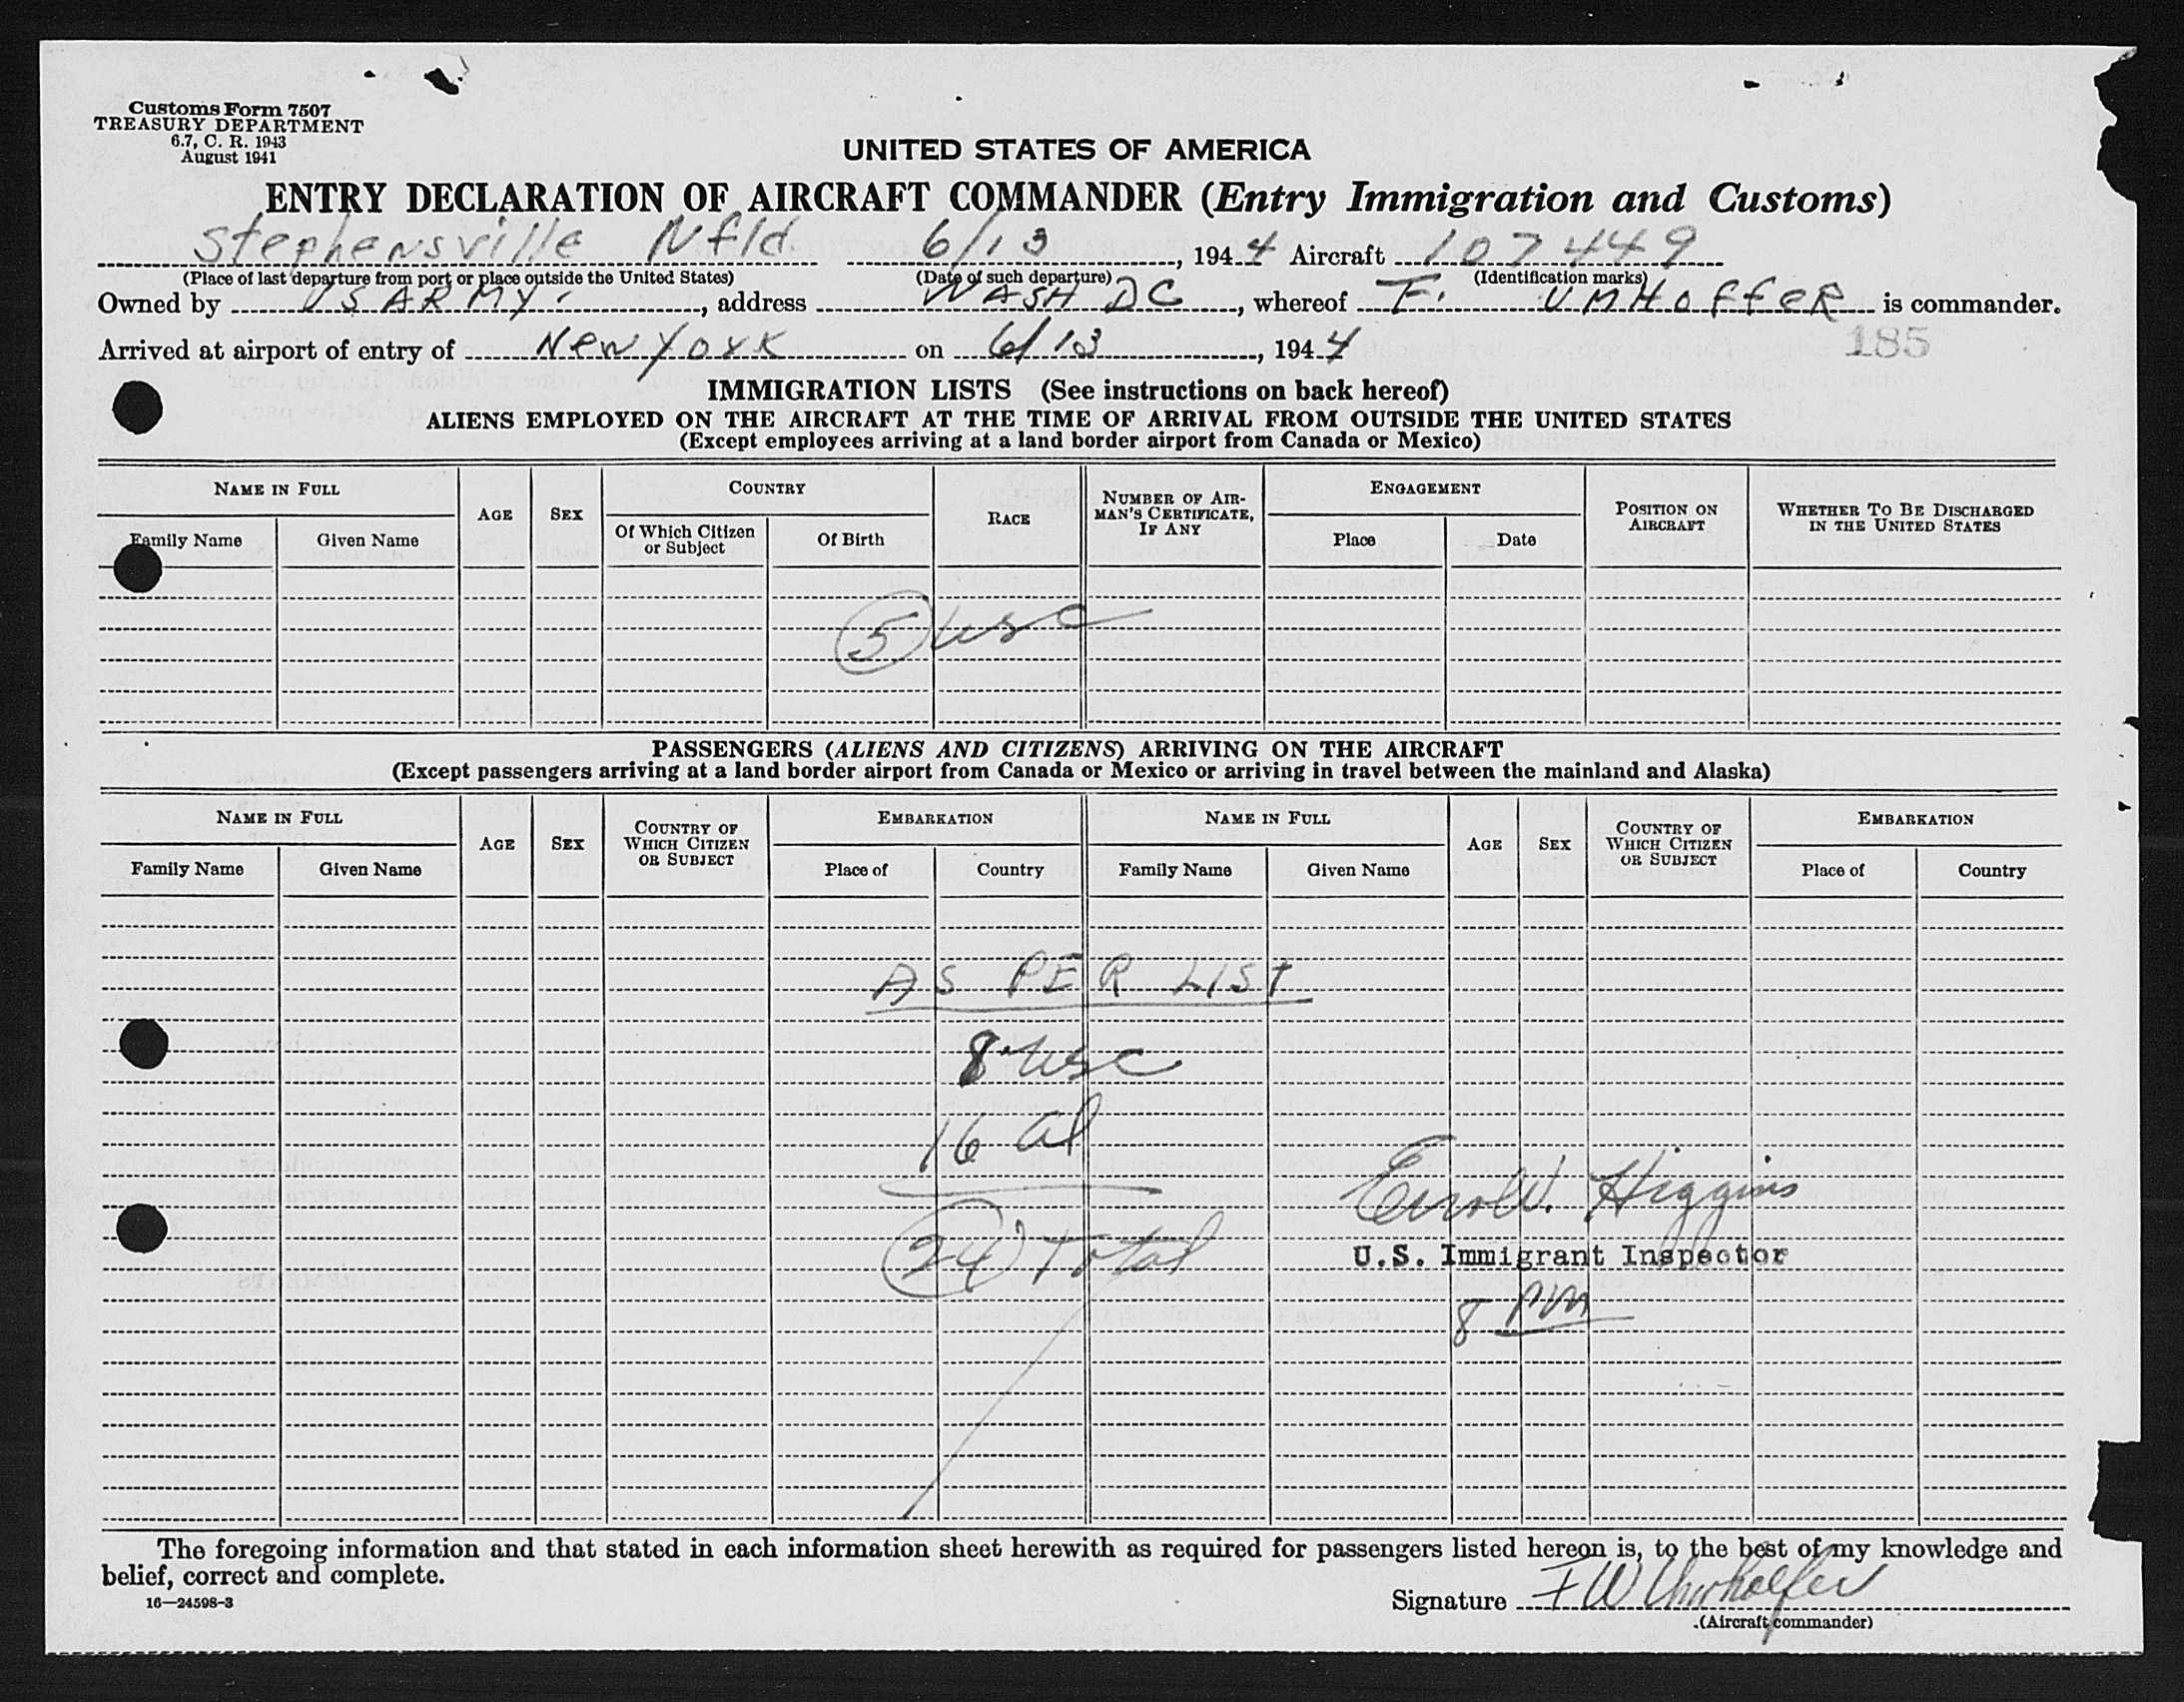 Customs Form 7507
TREASURY DEPARTMENT
6.7, C. R. 1943
August 1941
UNITED STATES OF AMERICA
ENTRY DECLARATION OF AIRCRAFT COMMANDER (Entry Immigration and Customs)
Stephensville Nfld 6/13, 1944 Aircraft 107449
(Place of last departure from port or place outside the United States) (Date of such departure) (Identification marks)
Owned by US ARMY, address WASH DC, whereof F. UMHOFFER is commander.
Arrived at airport of entry of New York on 6/13, 1944
185
IMMIGRATION LISTS (See instructions on back hereof)
ALIENS EMPLOYED ON THE AIRCRAFT AT THE TIME OF ARRIVAL FROM OUTSIDE THE UNITED STATES
(Except employees arriving at a land border airport from Canada or Mexico)
NAME IN FULL AGE SEX COUNTRY RACE NUMBER OF AIRMAN'S CERTIFICATE, IF ANY ENGAGEMENT POSITION ON AIRCRAFT WHETHER TO BE DISCHARGED IN THE UNITED STATES
Family Name Given Name Of Which Citizen or Subject Of Birth Place Date
5 usc
PASSENGERS (ALIENS AND CITIZENS) ARRIVING ON THE AIRCRAFT
(Except passengers arriving at a land border airport from Canada or Mexico or arriving in travel between the mainland and Alaska)
NAME IN FULL AGE SEX COUNTRY OF WHICH CITIZEN OR SUBJECT EMBARKATION NAME IN FULL AGE SEX COUNTRY OF WHICH CITIZEN OR SUBJECT EMBARKATION
Family Name Given Name Place of Country Family Name Given Name Place of Country
AS PER LIST
8 usc
16 al
24 Total
Errol W. Higgins
U.S. Immigrant Inspector
8 PM
The foregoing information and that stated in each information sheet herewith as required for passengers listed hereon is, to the best of my knowledge and
belief, correct and complete.
16—24598-3
Signature F W Umhoefer
(Aircraft commander)